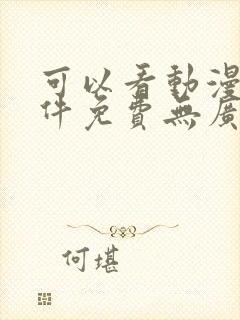 可以看動漫
件免費無廣
何堪